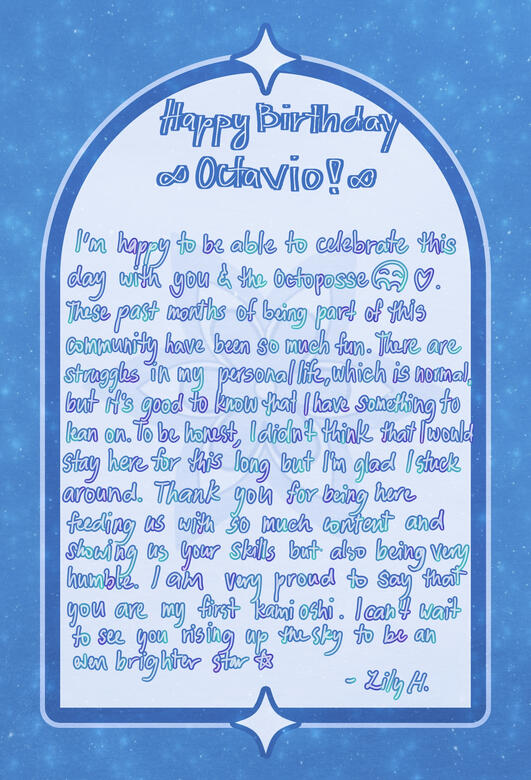 Happy Birthday
∞ Octavio! ∞
I'm happy to be able to celebrate this
day with you & the Octoposse ♡.
These past months of being part of this
community have been so much fun. There are
struggles in my personal life, which is normal,
but it's good to know that I have something to
lean on. To be honest, I didn't think that I would
stay here for this long but I'm glad I stuck
around. Thank you for being here
feeding us with so much content and
showing us your skills but also being very
humble. I am very proud to say that
you are my first kami oshi. I can't wait
to see you rising up the sky to be an
even brighter star ☆
- Lily H.